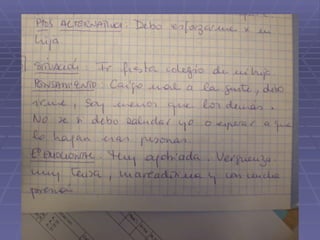 PTOS ALTERNATIVA: Debo esforzarme x mi
hija
SITUACIÓN: Ir fiesta colegio de mi hijo
PENSAMIENTO: Caigo mal a la gente, doy
, Soy menos que los demas.
No se si debo saludar yo o esperar a que
lo hagan otras personas.
Eº EMOCIONAL: Muy agobiada. Vergüenza.
muy tensa, mareadisima y con mucha